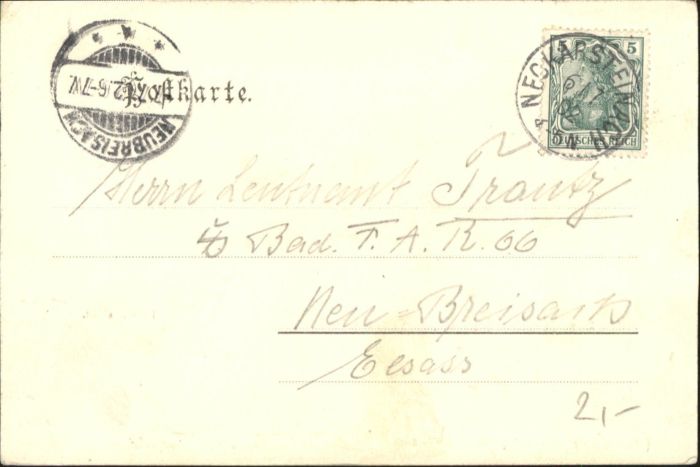 Postkarte.
NEUBREISACH
5 5
NECKARSTEINACH
DEUTSCHES REICH
Herrn Leutnant Trautz
Bad. F. A. R. 66
Neu-Breisach
Elsass
2,-